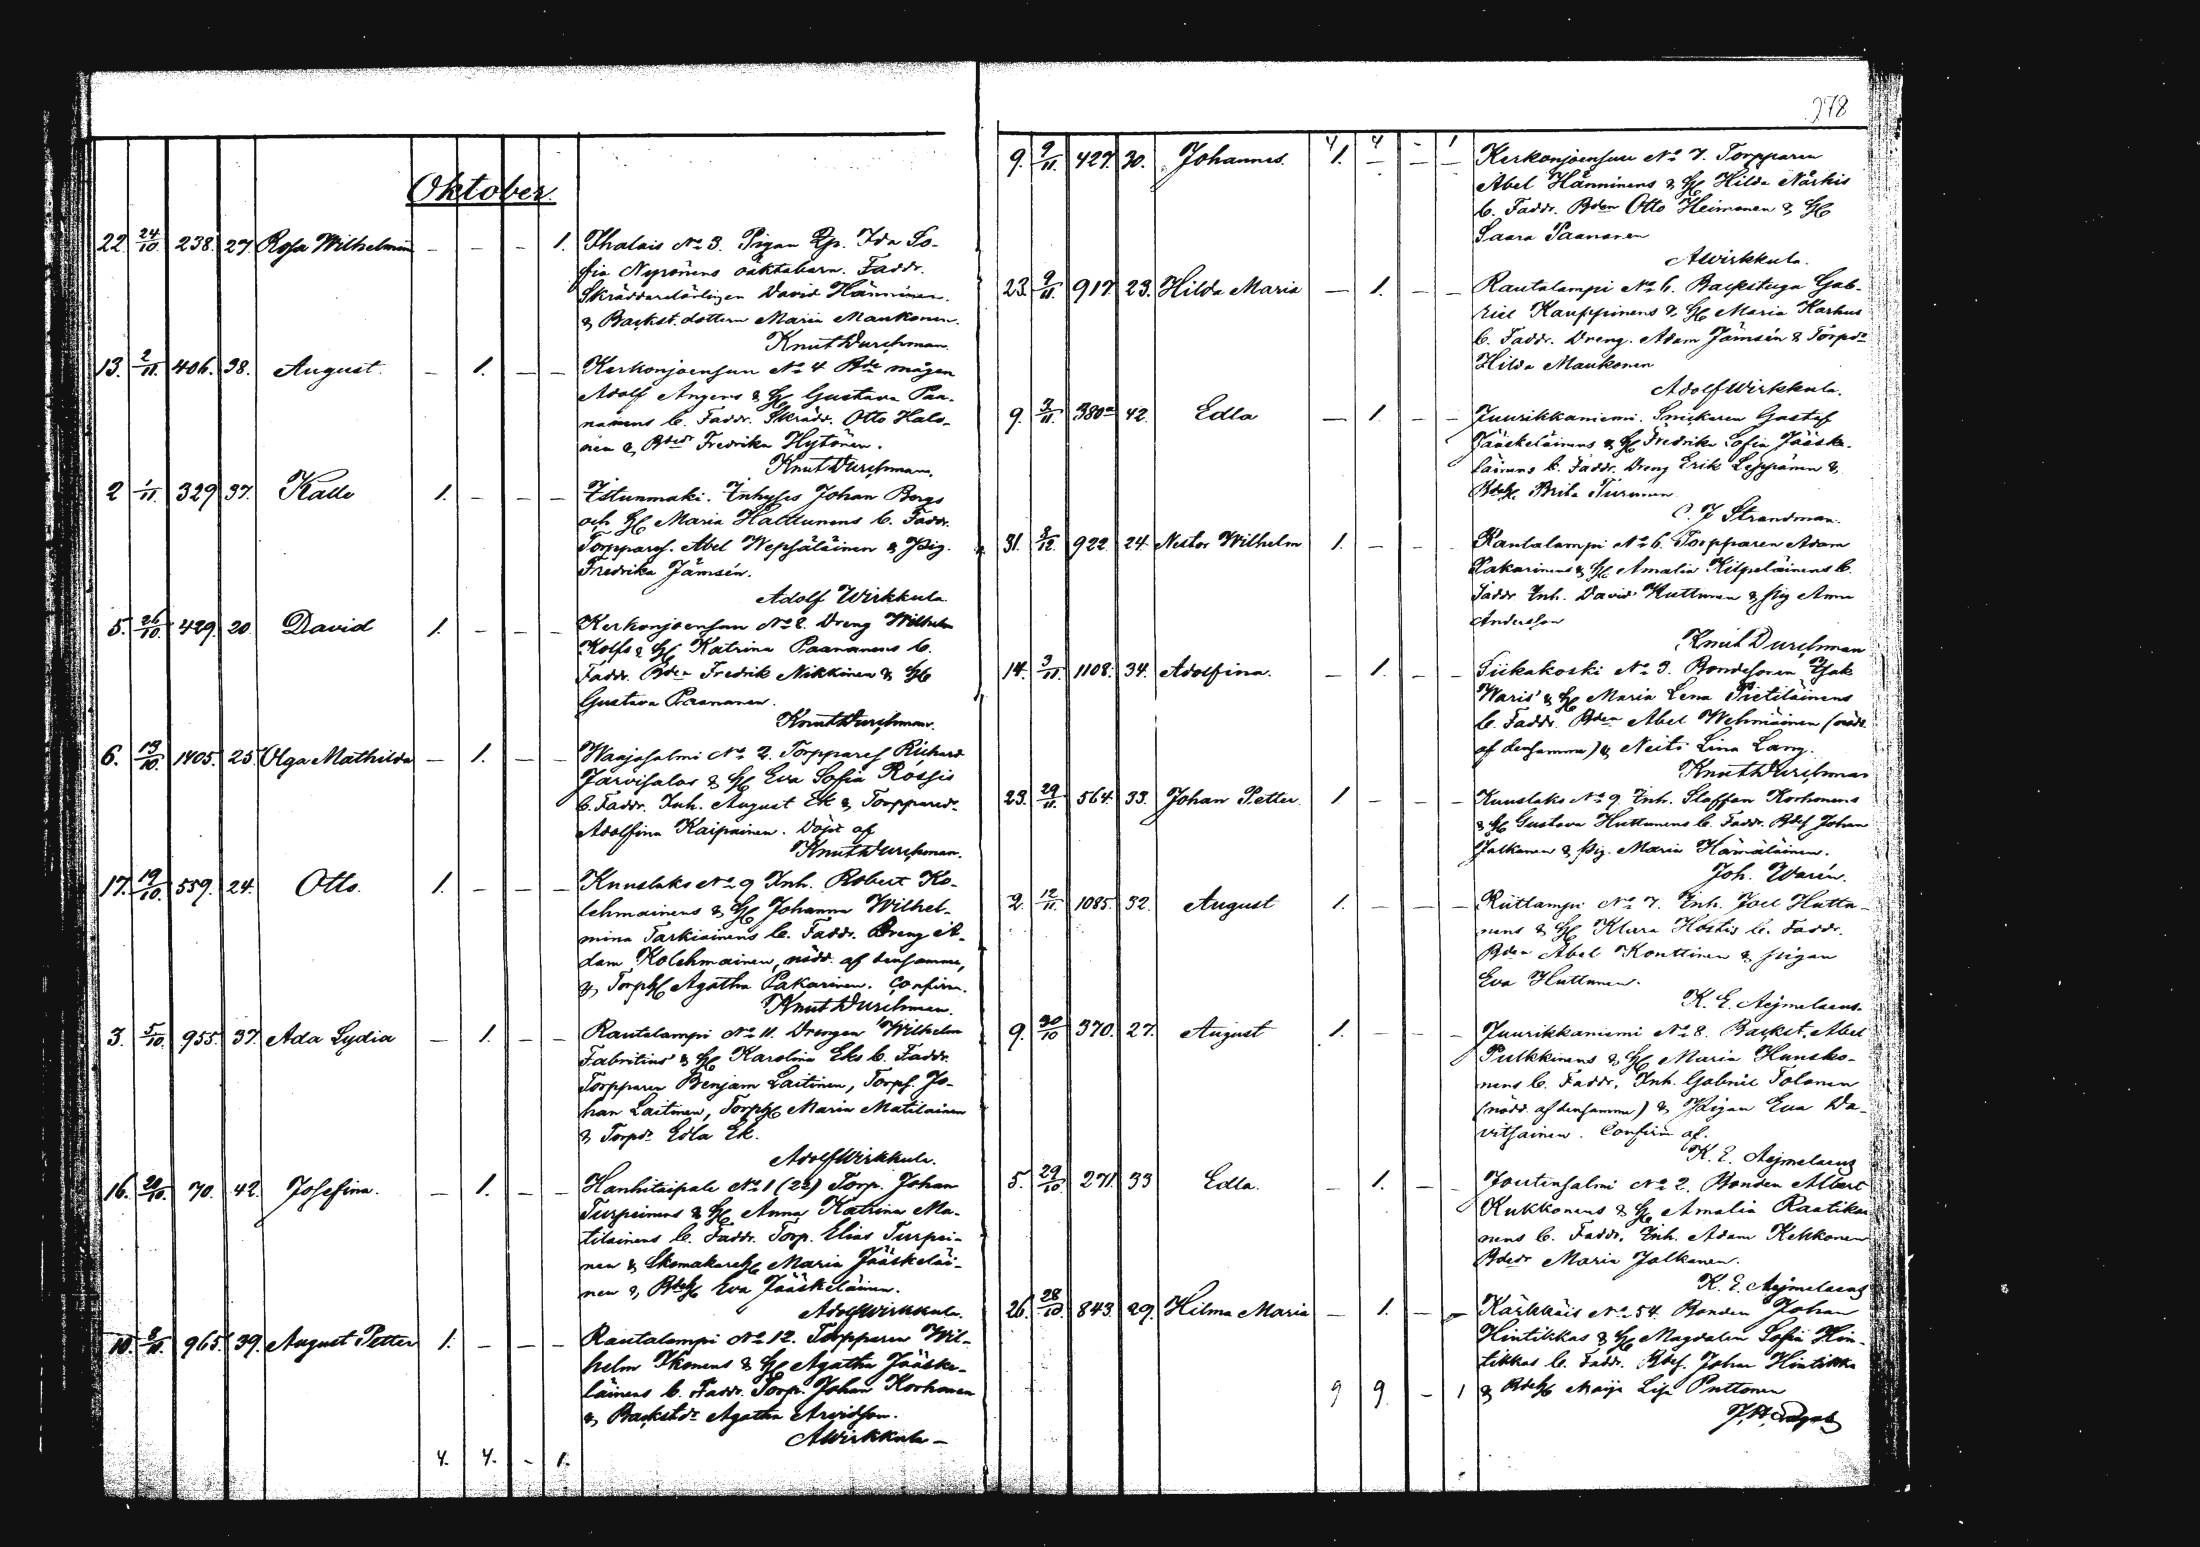 Oktober.
22. 24/10. 238. 27. Rosa Wilhelmin — — — 1. Ihalais No 3. Pigan Ida So-
fia Nyrönens oäkta barn. Faddr.
Skräddarelärlingen David Hänninen
& Backst. dottern Maria Maukonen.
Knut Durchman.
13. 2/11. 406. 38. August. — 1. — — Kerkonjoensuu No 4 Bde mågen
Adolf Angers & H Gustava Paa-
nanens b. Faddr. Skrädr. Otto Halo-
nen & Bdedr Fredrika Hytönen.
Knut Durchman.
2 1/11. 329 37. Kalle 1. — — — Istunmäki. Inhyses Johan Bergs
och H Maria Halttunens b. Faddr.
Torppares. Abel Wepsäläinen & Pig.
Fredrika Jämsén.
Adolf Wirkkula
5. 26/10. 429. 20. David 1. — — — Kerkonjoensuu No 2. Dreng Wilhelm
Rolfs & H Katrina Paananens b.
Faddr. Bden Fredrik Nikkinen & H
Gustava Paananen.
Knut Durchman.
6. 13/10. 1405. 25. Olga Mathilda — 1. — — Waajasalmi No 2. Torppares Richard
Järvisalos & H Eva Sofia Rössis
b. Faddr. Inh. August Ek & Torpparedr
Adolfina Kaipainen. Döpt af
Knut Durchman.
17. 19/10. 559. 24. Otto. 1. — — — Kuuslaks No 9 Inh. Robert Ko-
lehmainens & H Johanna Wilhel-
mina Tarkiainens b. Faddr. Dreng A-
dam Kolehmainen, nödd. af densamme,
& Torph Agatha Pakarinen. Confirm.
Knut Durchman.
3. 5/10. 955. 37. Ada Lydia — 1. — — Rautalampi No 11. Drengen Wilhelm
Fabritius & H Karolina Eks b. Faddr.
Torpparen Benjam Laitinen, Torps. Jo-
han Laitinen, Torph Maria Matilainen
& Torpdr Edla Ek.
Adolf Wirkkula.
16. 20/10. 70. 42. Josefina. — 1. — — Hanhitaipale No 1 (22) Torp. Johan
Turpeinens & H Anna Katrina Ma-
tilainens b. Faddr. Torp. Elias Turpei-
nen & Skomakareh Maria Jääskeläi-
nen & Bdeh Eva Jääskeläinen.
Adolf Wirkkula.
10. 965. 39. August Petter 1. — — — Rautalampi No 12. Torpparen Wil-
helm Ikonens & H Agatha Jääske-
läinens b. Faddr. Torp. Johan Korhonen
& Backstdr Agatha Arvidson.
AWirkkula —
4. 4. - 1.
278
4 4 - 1
9. 9/11. 427. 30. Johannes. 1. — — — Kerkonjoensuu No 7. Torpparen
Abel Hänninens & H Hilda Närhis
b. Faddr. Bden Otto Heimonen & H
Saara Paananen
AWirkkula.
23. 9/11. 917. 23. Hilda Maria — 1. — — Rautalampi No 6. Backstuga Gab-
riel Kauppinens & H Maria Karhus
b. Faddr. Dreng. Adam Jämsén & Torpdr
Hilda Maukonen
Adolf Wirkkula.
9. 2/11. 380 42. Edla — 1. — — Juurikkaniemi. Snickaren Gustaf
Jääskeläinens & H Fredrika Sofia Jääske-
läinens b. Faddr. Dreng Erik Leppänen &
Bdeh. Brita Turunen
C. J Strandman.
31. 3/12. 922. 24 Nestor Wilhelm 1. — — Rautalampi No 6. Torpparen Adam
Pakarinens & H Amalia Kilpeläinens b.
Faddr Inh. David Huttunen & Pig Anna
Andersson
Knut Durchman
14. 3/11. 1108. 34. Adolfina. — 1. — — Tiikakoski No 3. Bondesonen Isak
Waris' & H Maria Lena Pietiläinens
b. Faddr. Bden Abel Wehmäinen (nödd.
af densamma) & Neits Lina Lang.
Knut Durchman
23. 29/11. 564. 33. Johan Petter. 1. — — — Kuuslaks No 9. Inh. Staffan Korhonens
& H Gustava Huttunens b. Faddr. Bdes Johan
Jalkanen & Pig. Maria Hämäläinen.
Joh. Warén.
2. 12/11. 1085. 32. August 1. — — — Riittampi No 7. Inh. Joel Huttu-
nens & H Klara Hostis b. Faddr.
Bden Abel Konttinen & pigan
Eva Huttunen.
K. E. Aejmelaeus.
9. 30/10 370. 27. August 1. — — — Juurikkaniemi No 8. Backst. Abel
Pulkkinens & H Maria Hansko-
nens b. Faddr. Inh. Gabriel Tolonen
(nödd. af densamma) & Pigan Eva Da-
vitsainen. Confirm af.
K. E. Aejmelaeus
5. 29/10. 271. 33 Edla. — 1. — — Joutensalmi No 2. Bonden Albert
Kukkonens & H Amalia Raatikai
nens b. Faddr. Inh. Adam Kekkonen
Bdedr Maria Jalkanen.
K. E. Aejmelaeus
26. 28/10. 843. 29. Hilma Maria — 1. — — Kärkkäis No 54. Bonden Johan
Hintikkas & H Magdalen Sofia Hin-
tikkas b. Faddr. Bdes. Johan Hintikka
9 9. - 1 & Bdeh Maija Lisa Puttonen